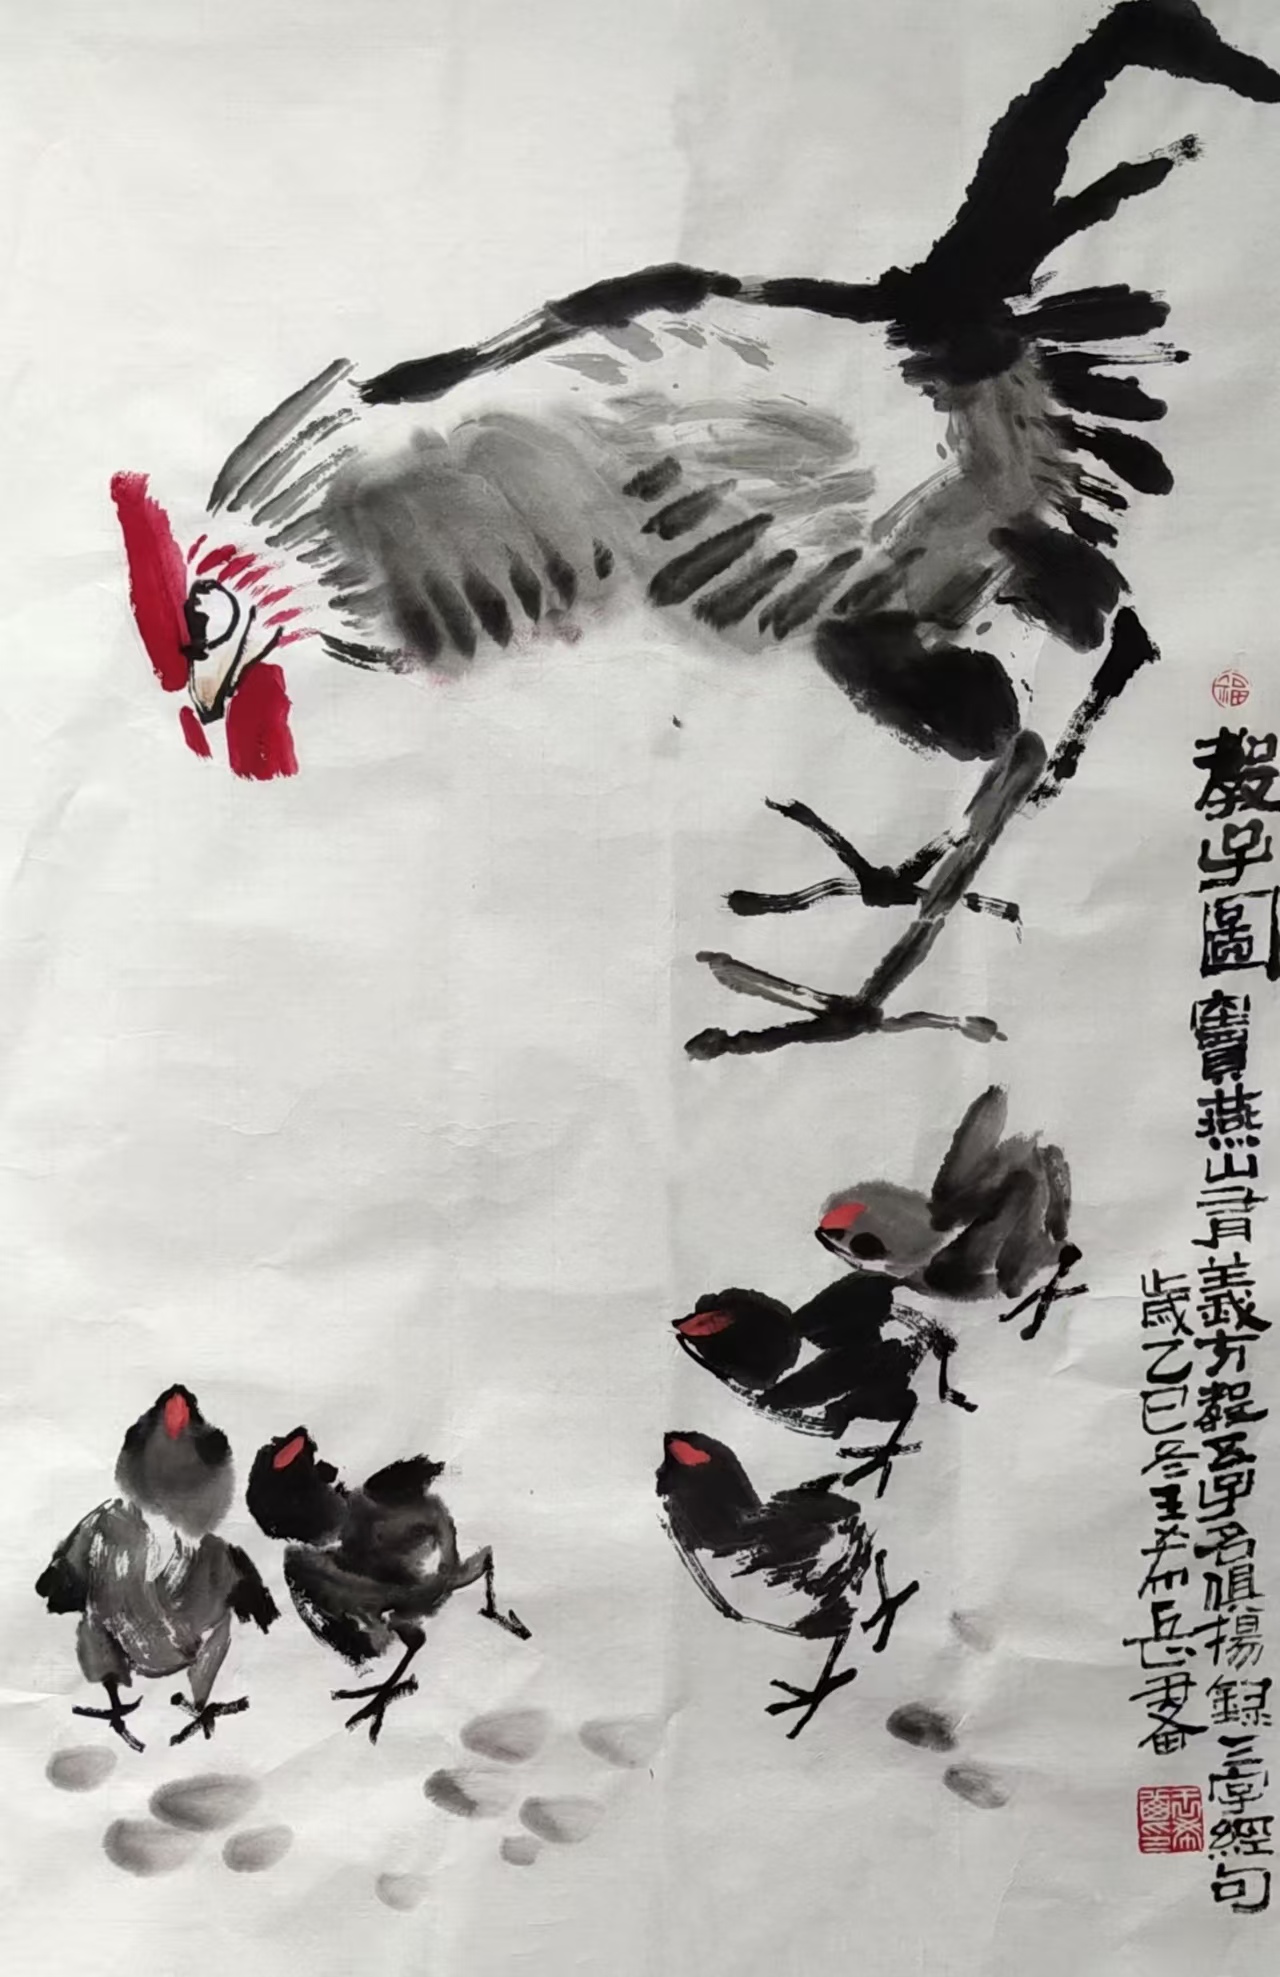 福
教子圖 竇燕山 有義方 教五子 名俱揚 錄三字經句
歲乙巳冬王希岳畫